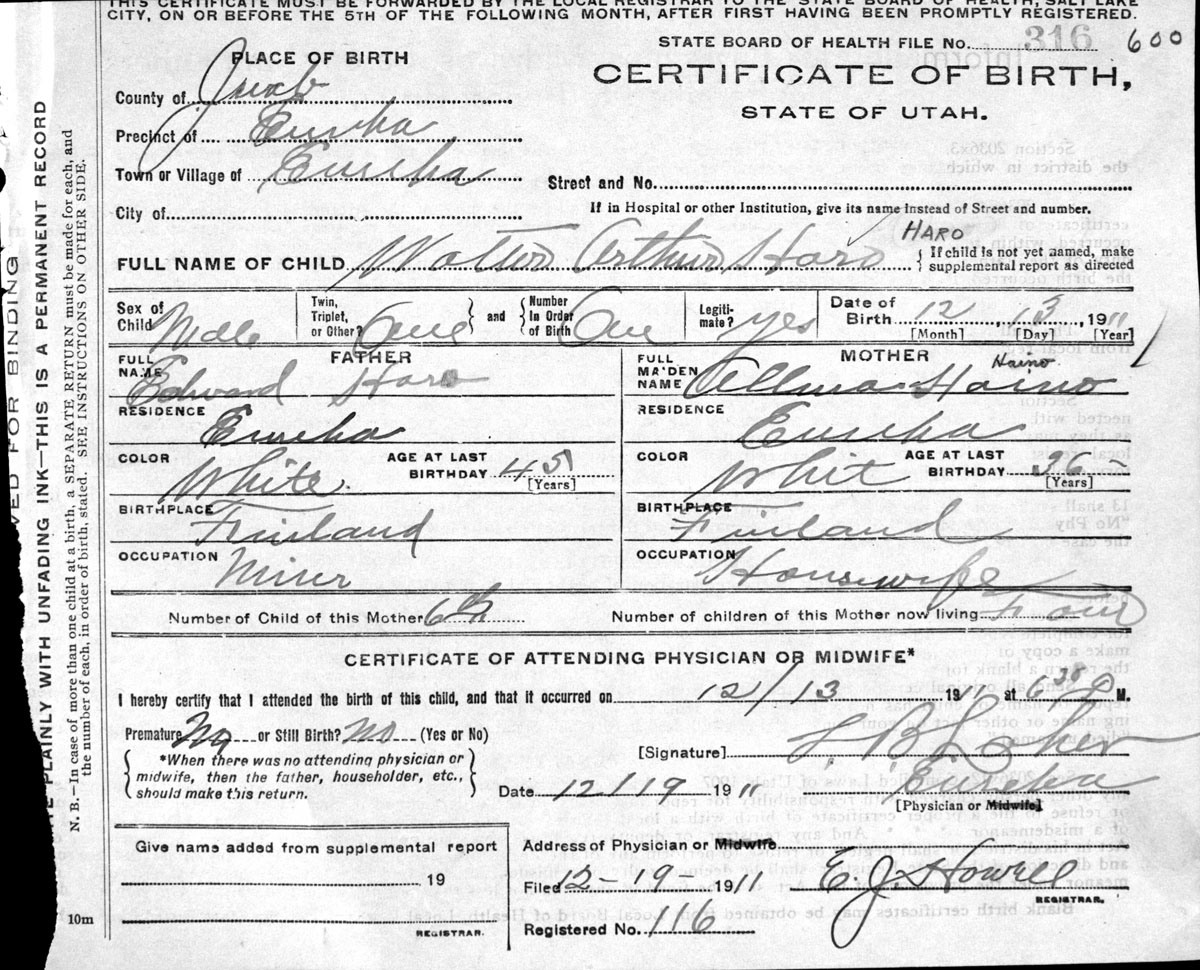 THIS CERTIFICATE MUST BE FORWARDED BY THE LOCAL REGISTRAR TO THE STATE BOARD OF HEALTH, SALT LAKE
CITY, ON OR BEFORE THE 5TH OF THE FOLLOWING MONTH, AFTER FIRST HAVING BEEN PROMPTLY REGISTERED.
STATE BOARD OF HEALTH FILE No. 316 600
PLACE OF BIRTH
CERTIFICATE OF BIRTH,
STATE OF UTAH.
County of Juab
Precinct of Eureka
Town or Village of Eureka
Street and No.
City of
If in Hospital or other Institution, give its name instead of Street and number.
HARO
FULL NAME OF CHILD Walter Arthur Haro
If child is not yet named, make
supplemental report as directed
Sex of Child Male
Twin, Triplet, or Other? One
and
Number In Order of Birth One
Legiti-mate? yes
Date of Birth 12 13, 1911
[Month] [Day] [Year]
FATHER
FULL NAME Edward Haro
RESIDENCE
Eureka
COLOR White.
AGE AT LAST BIRTHDAY 45
[Years]
BIRTHPLACE Finland
OCCUPATION Miner
MOTHER
Haino
FULL MAIDEN NAME Allma Haino
RESIDENCE
Eureka
COLOR Whit
AGE AT LAST BIRTHDAY 36
[Years]
BIRTHPLACE Finland
OCCUPATION Housewife
Number of Child of this Mother 6th
Number of children of this Mother now living Four
CERTIFICATE OF ATTENDING PHYSICIAN OR MIDWIFE*
I hereby certify that I attended the birth of this child, and that it occurred on 12/13 191 at 6 30 P M.
Premature No or Still Birth? No (Yes or No)
*When there was no attending physician or
midwife, then the father, householder, etc.,
should make this return.
[Signature]
Date 12/19 1911
Eureka
[Physician or Midwife]
Give name added from supplemental report
19
REGISTRAR.
Address of Physician or Midwife
Filed 12 19 1911 E. J. Howell
REGISTRAR.
Registered No. 116
10m
VED FOR BINDING
PLAINLY WITH UNFADING INK—THIS IS A PERMANENT RECORD
N. B.—In case of more than one child at a birth, a SEPARATE RETURN must be made for each, and
the number of each, in order of birth, stated. SEE INSTRUCTIONS ON OTHER SIDE.